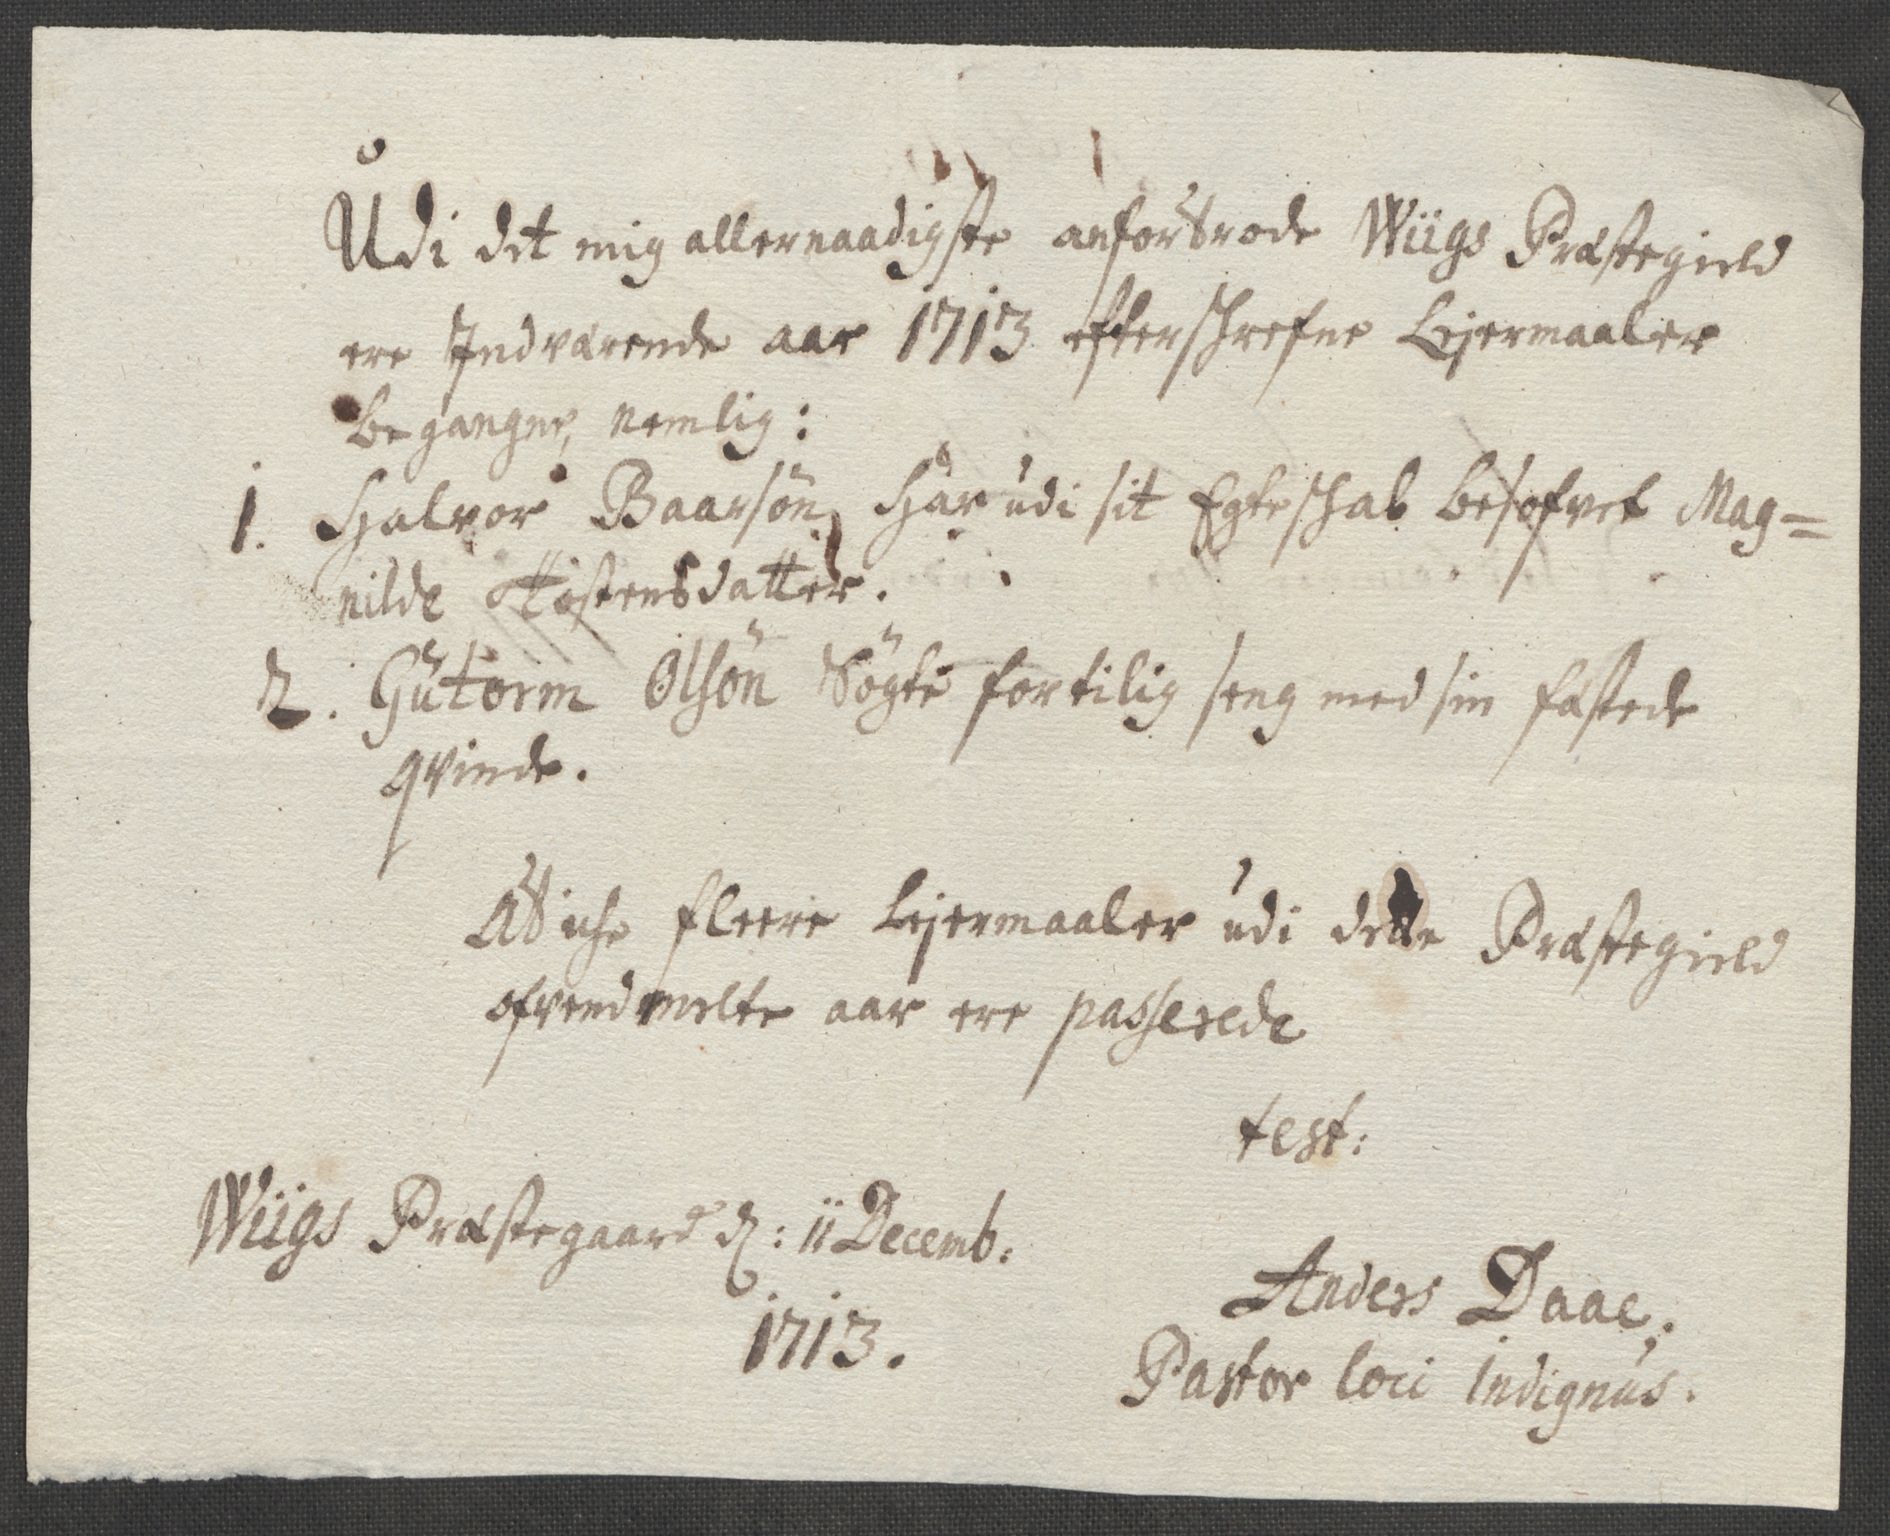 Udi det mig allernaadigste anfortrode Wiigs Præstegield
ere Indværende aar 1713 efterschrefne Lejermaaler
begangne, nemlig:
1. Halvor Baarsön har udi sit Egteschab besofvet Mag=
nilde Tostensdatter.
2. Gutorm Olsön Sögte for tilig seng med sin fæstede
qvinde.
At iche fleere Lejermaaler udi dette Præstegield
ofvenmelte aar ere passerede
test:
Wiigs Præstegaard d: 11 Decemb:
1713.
Anders Daae.
Pastor loci indignus.